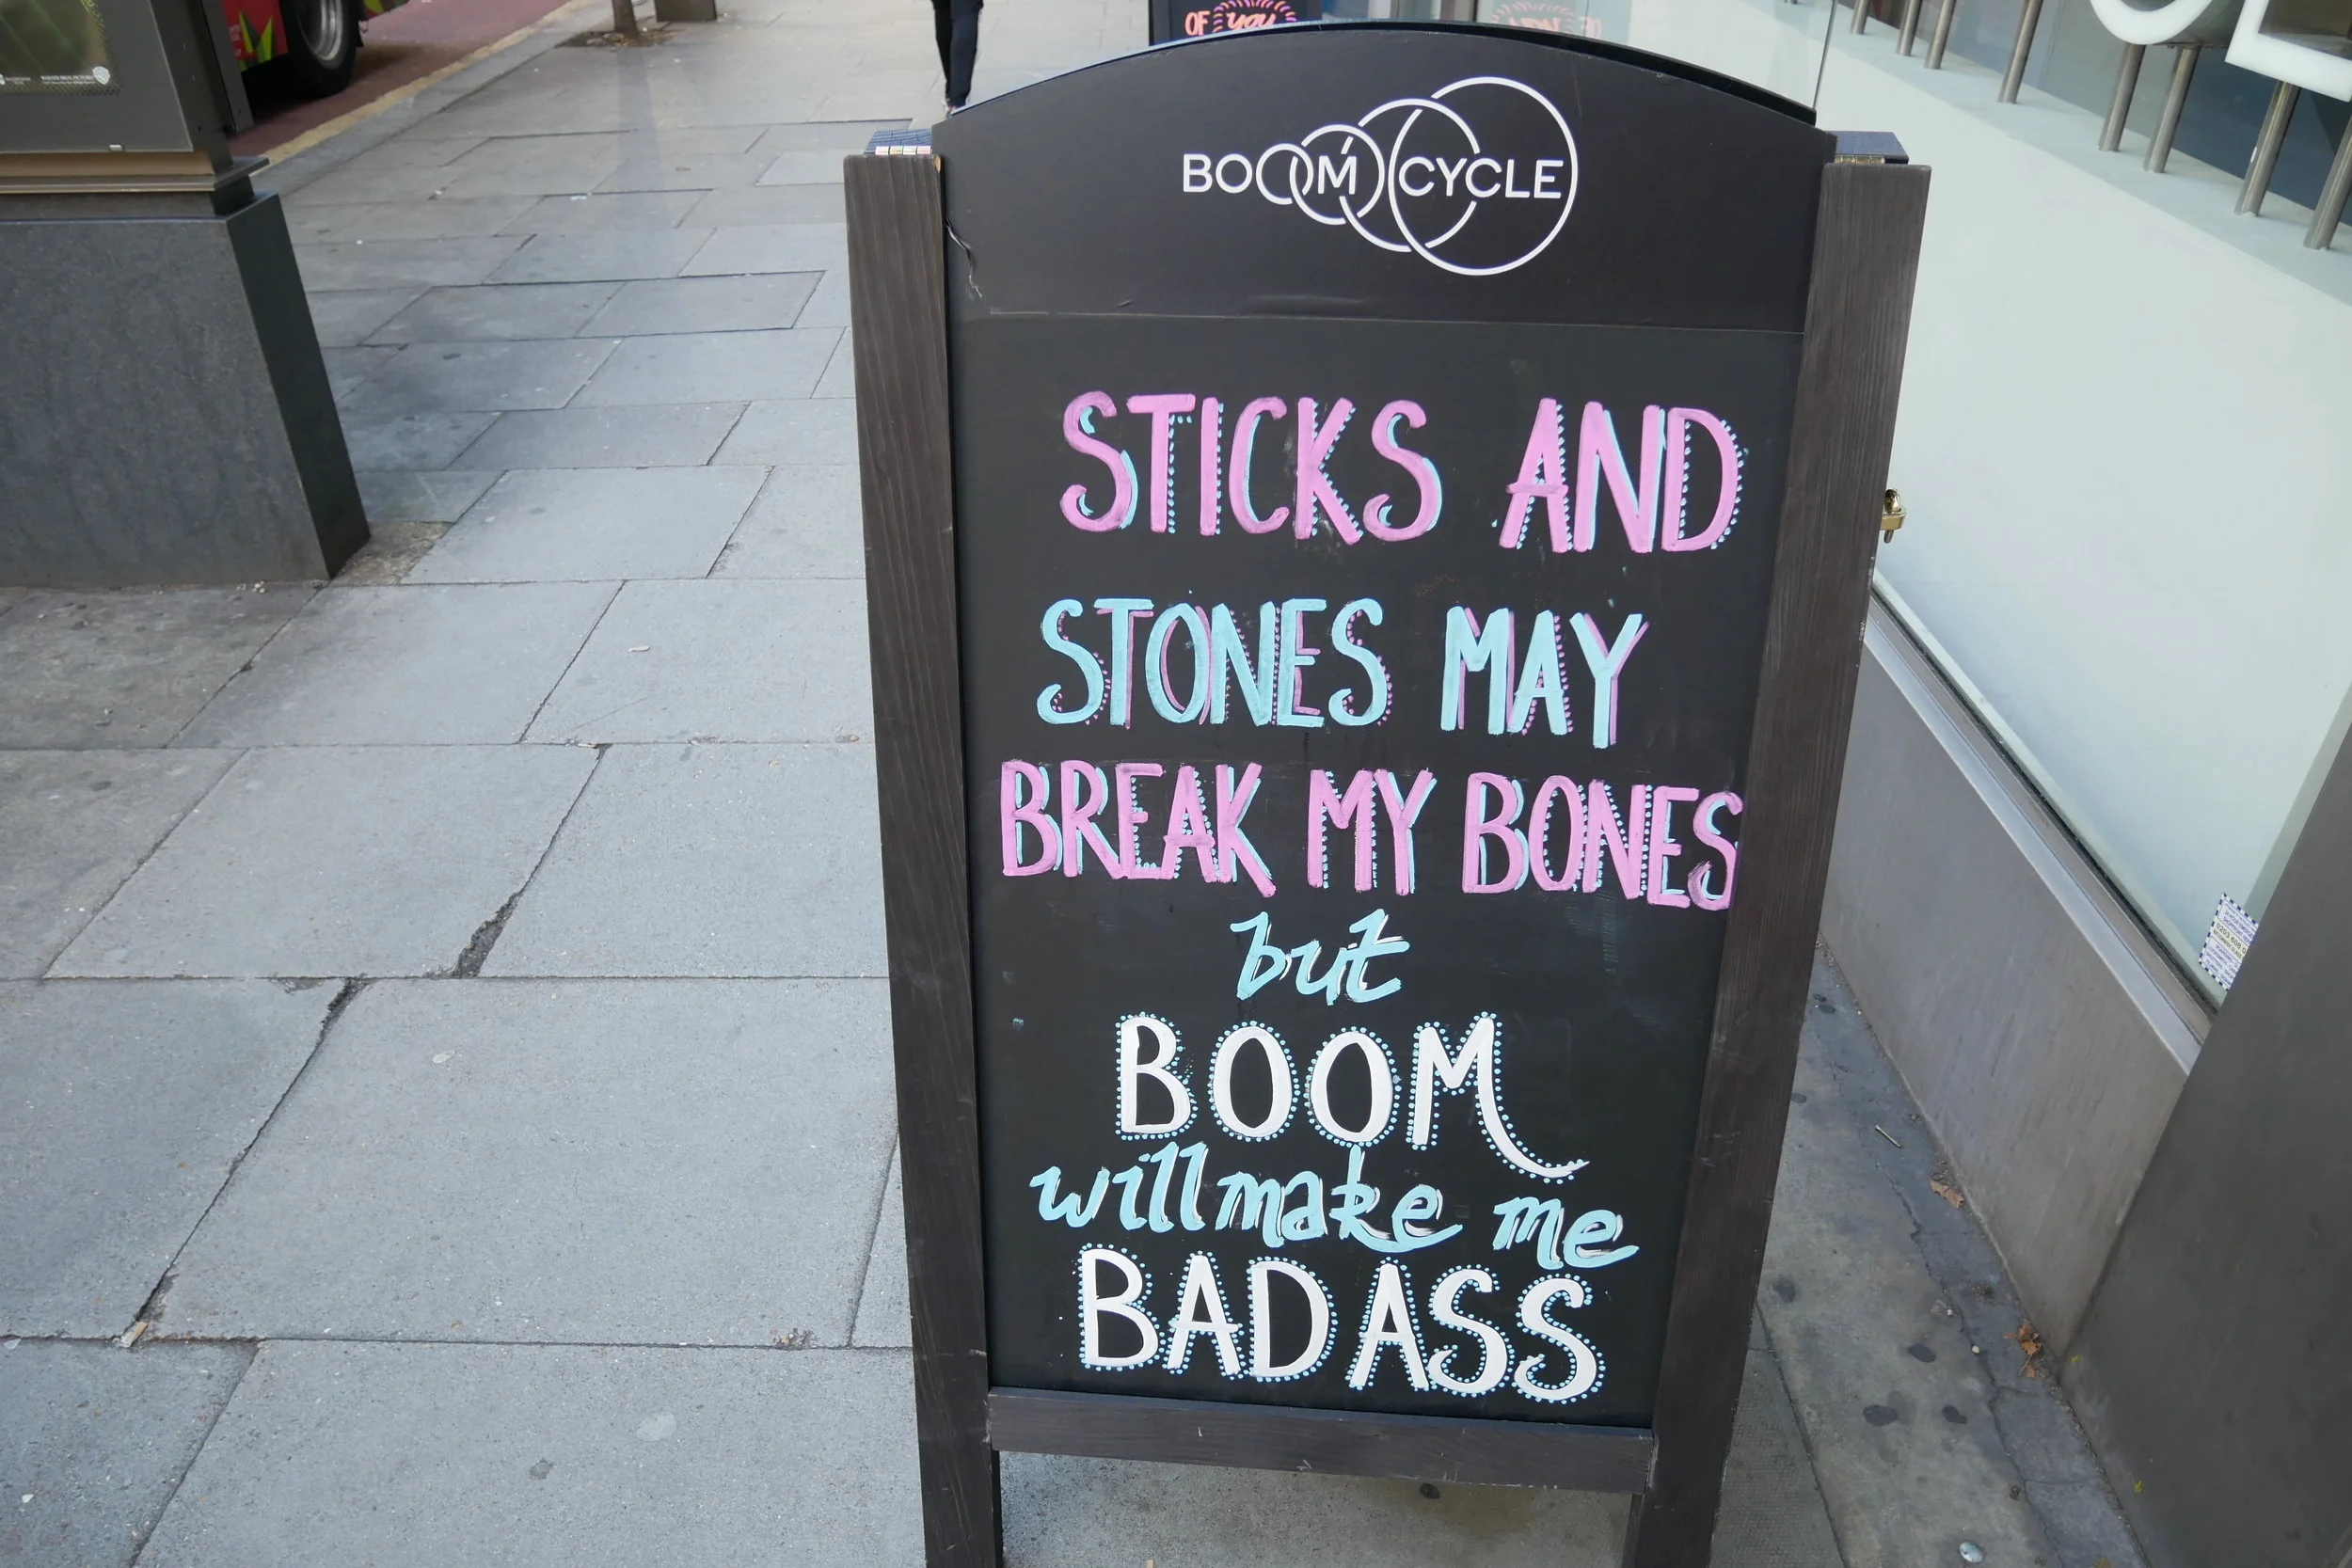 OF you
BOOM CYCLE
STICKS AND
STONES MAY
BREAK MY BONES
but
BOOM
will make me
BADASS